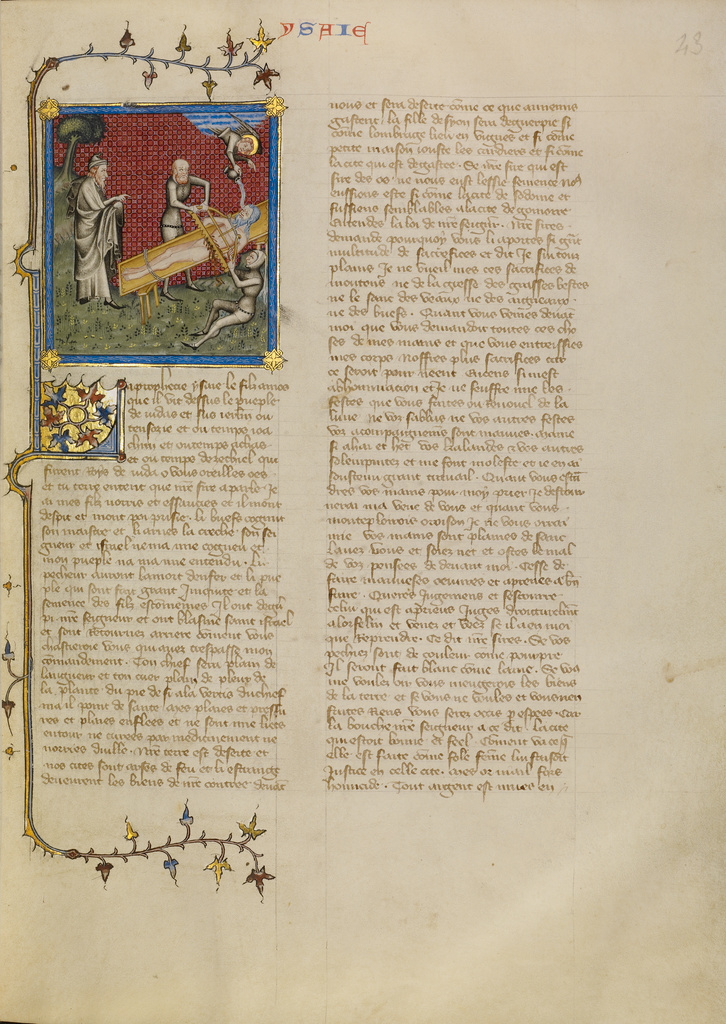 YSAIE
La prophecie ysaie le filz amos
que il vit dessus le pueple
de iudas et sus ierlm ou
et ou temps ioa
et ou temps achas
et ou temps de ezechiel qui
furent roys de iuda O vous oreilles oes
et tu terre entent que nre sire a parle Je
ai mes filz norris et essaucies et il mont
despit et mont poi prisie . li buefs cognut
son maistre et li asnes la creche son sei
gneur et israel ne ma mie cogneu et
mon pueple na ma mie entendu . Li
pecheur auront la mort denfer et li pue
ple qui sont si grant iniquite et la
semence des filz Il ont
nre seigneur et ont blasme saint israel
et sont retournes arriere coment vous
chastieroie vous qui aues trespasse mon
comandement . Ton chief sera plain de
langueur et ton cuer plain de pleur de
la plante du pie de si a la vertis du chief
na il point de sante mes plaies et
res et plaies enflees et ne sont mie liees
entour ne curees par medicinement ne
norries duille . Nre terre est deserte et
nos cites sont arses de feu et li estrange
deueurent les biens de nre contree deuant
nous et sera deserte come ce que anemis
gastent . la fille de syon sera deguerpie si
come lombrage lieu en vignes et si come
petite maison iouste les et si come
la cite qui est degastee . Se nre sire qui est
sire des os ne nous eust lessie semence nos
eussions este si come la cite de sodome et
fussiens semblables a la cite de gomorre
Entendes la loi de nre seigneur . Nre sires
demande pourquoy vous li aportes si grant
multitude de sacrefices et dit Je sui tout
plains Je ne vueil mes ces sacrifices de
moutons ne de la gresse des grasses bestes
ne le sanc des veaux ne des aigneaux
ne des buefs . Quant vous venes deuant
moi que vous demandoit toutes ces cho
ses de mes mains et que vous entrissies
mes corps . Noffres plus sacrifices car
ce seroit pour neent Encens si mest
abhominacion et Je ne seuffre mie les
festes que vous faites ou renouel de la
lune ne vos sabbas ne vos autres festes
vos acompaignemens sont mauues
si a hai et het vos kalandes et vos autres
solempnitez et me sont moleste et ie en ai
soustenu grant trauail . Quant vous esten
dres vos mains pour moy prier Je destour
nerai ma veue de vous et quant vous
monteplierois orison Je ne vous orrai
mie . vos mains sont plaines de sanc
laues vous et soies net et ostes le mal
de vos pensees de deuant moi . Cesse de
faire mauueses oeuures et aprenes a bien
faire . Queres iugemens et secourre
celui qui est Juges droiturelment
a lorfelin et venes et vees se il a en moi
que reprendre . Ce dit nre sires . Se vos
pechies sont de couleur come pourpre
Il seront fait blanc come laine . Se vos
me voules oir vous mengeres les biens
de la terre . et se vous ne voules et vous men
faites Vous seres occis par espees . Car
la bouche nre seigneur a ce dit la cite
qui estoit bonne et feel . Coment
elle est faite come fole fame
Justice en celle cite . mes or mail sons
homicide . Tout argent est mues en